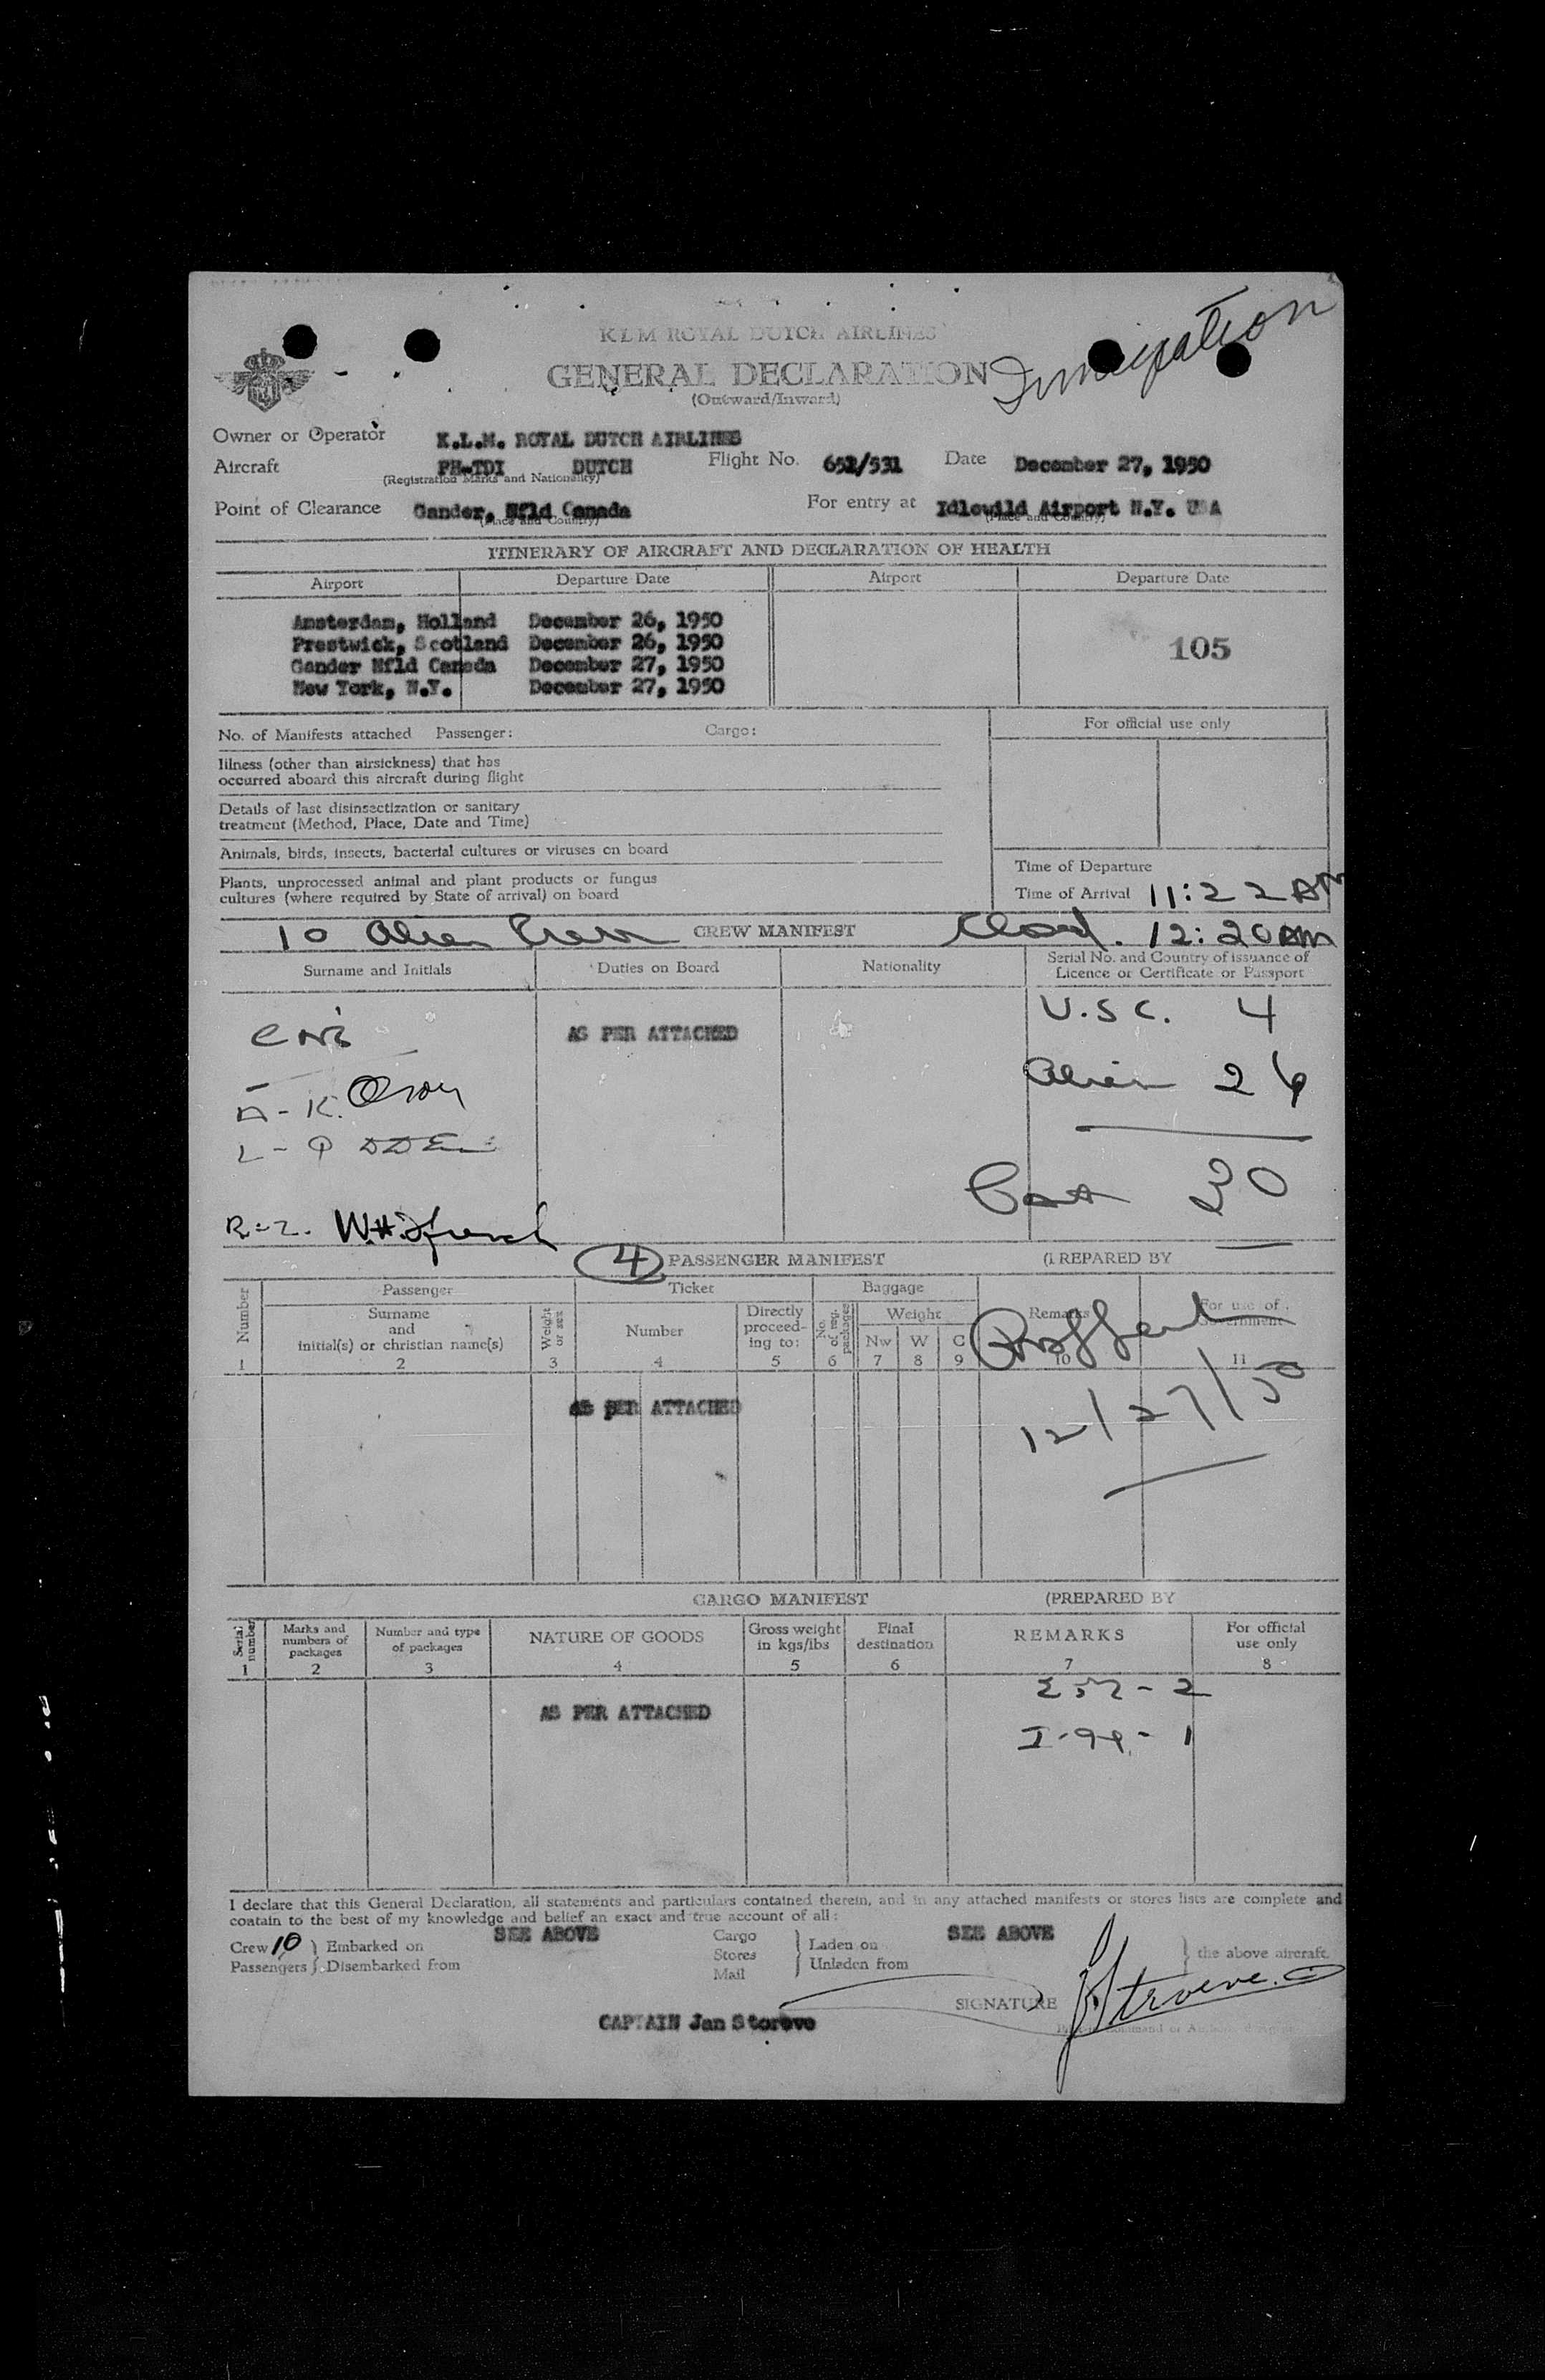 Immigration
KLM ROYAL DUTCH AIRLINES
GENERAL DECLARATION
(Outward/Inward)
Owner or Operator K.L.M. ROYAL DUTCH AIRLINES
Aircraft PH-TDI DUTCH Flight No. 651/531 Date December 27, 1950
(Registration Marks and Nationality)
Point of Clearance Gander, Nfld Canada For entry at Idlewild Airport N.Y. USA
(Place and Country) (Place and Country)
ITINERARY OF AIRCRAFT AND DECLARATION OF HEALTH
Airport Departure Date Airport Departure Date
Amsterdam, Holland December 26, 1950
Prestwick, Scotland December 26, 1950
105
Gander Nfld Canada December 27, 1950
New York, N.Y. December 27, 1950
No. of Manifests attached Passenger: Cargo: For official use only
Illness (other than airsickness) that has
occurred aboard this aircraft during flight
Details of last disinsectization or sanitary
treatment (Method, Place, Date and Time)
Animals, birds, insects, bacterial cultures or viruses on board
Plants, unprocessed animal and plant products or fungus
cultures (where required by State of arrival) on board
Time of Departure
Time of Arrival 11:22 AM
10 Alien Crew CREW MANIFEST Closed. 12:20 AM
Surname and Initials Duties on Board Nationality Serial No. and Country of issuance of
Licence or Certificate or Passport
AS PER ATTACHED
U.S.C. 4
Alien 26
30
A-K. Olson
L-Q
R-Z. W.H.
4 PASSENGER MANIFEST (PREPARED BY
Number Passenger Ticket Baggage
Surname and initial(s) or christian name(s) Weight or sex Number Directly proceeding to: No. of reg. packages Weight Nw W C Remarks For use of Government
1 2 3 4 5 6 7 8 9 10 11
AS PER ATTACHED
12/27/50
CARGO MANIFEST (PREPARED BY
Serial number Marks and numbers of packages Number and type of packages NATURE OF GOODS Gross weight in kgs/lbs Final destination REMARKS For official use only
1 2 3 4 5 6 7 8
AS PER ATTACHED
I-94-1
I declare that this General Declaration, all statements and particulars contained therein, and in any attached manifests or stores lists are complete and
contain to the best of my knowledge and belief an exact and true account of all:
Crew 10 } Embarked on SEE ABOVE Cargo } Laden on SEE ABOVE } the above aircraft.
Passengers } Disembarked from Stores } Unladen from
Mail
SIGNATURE J. Stroeve.
CAPTAIN Jan Storeve